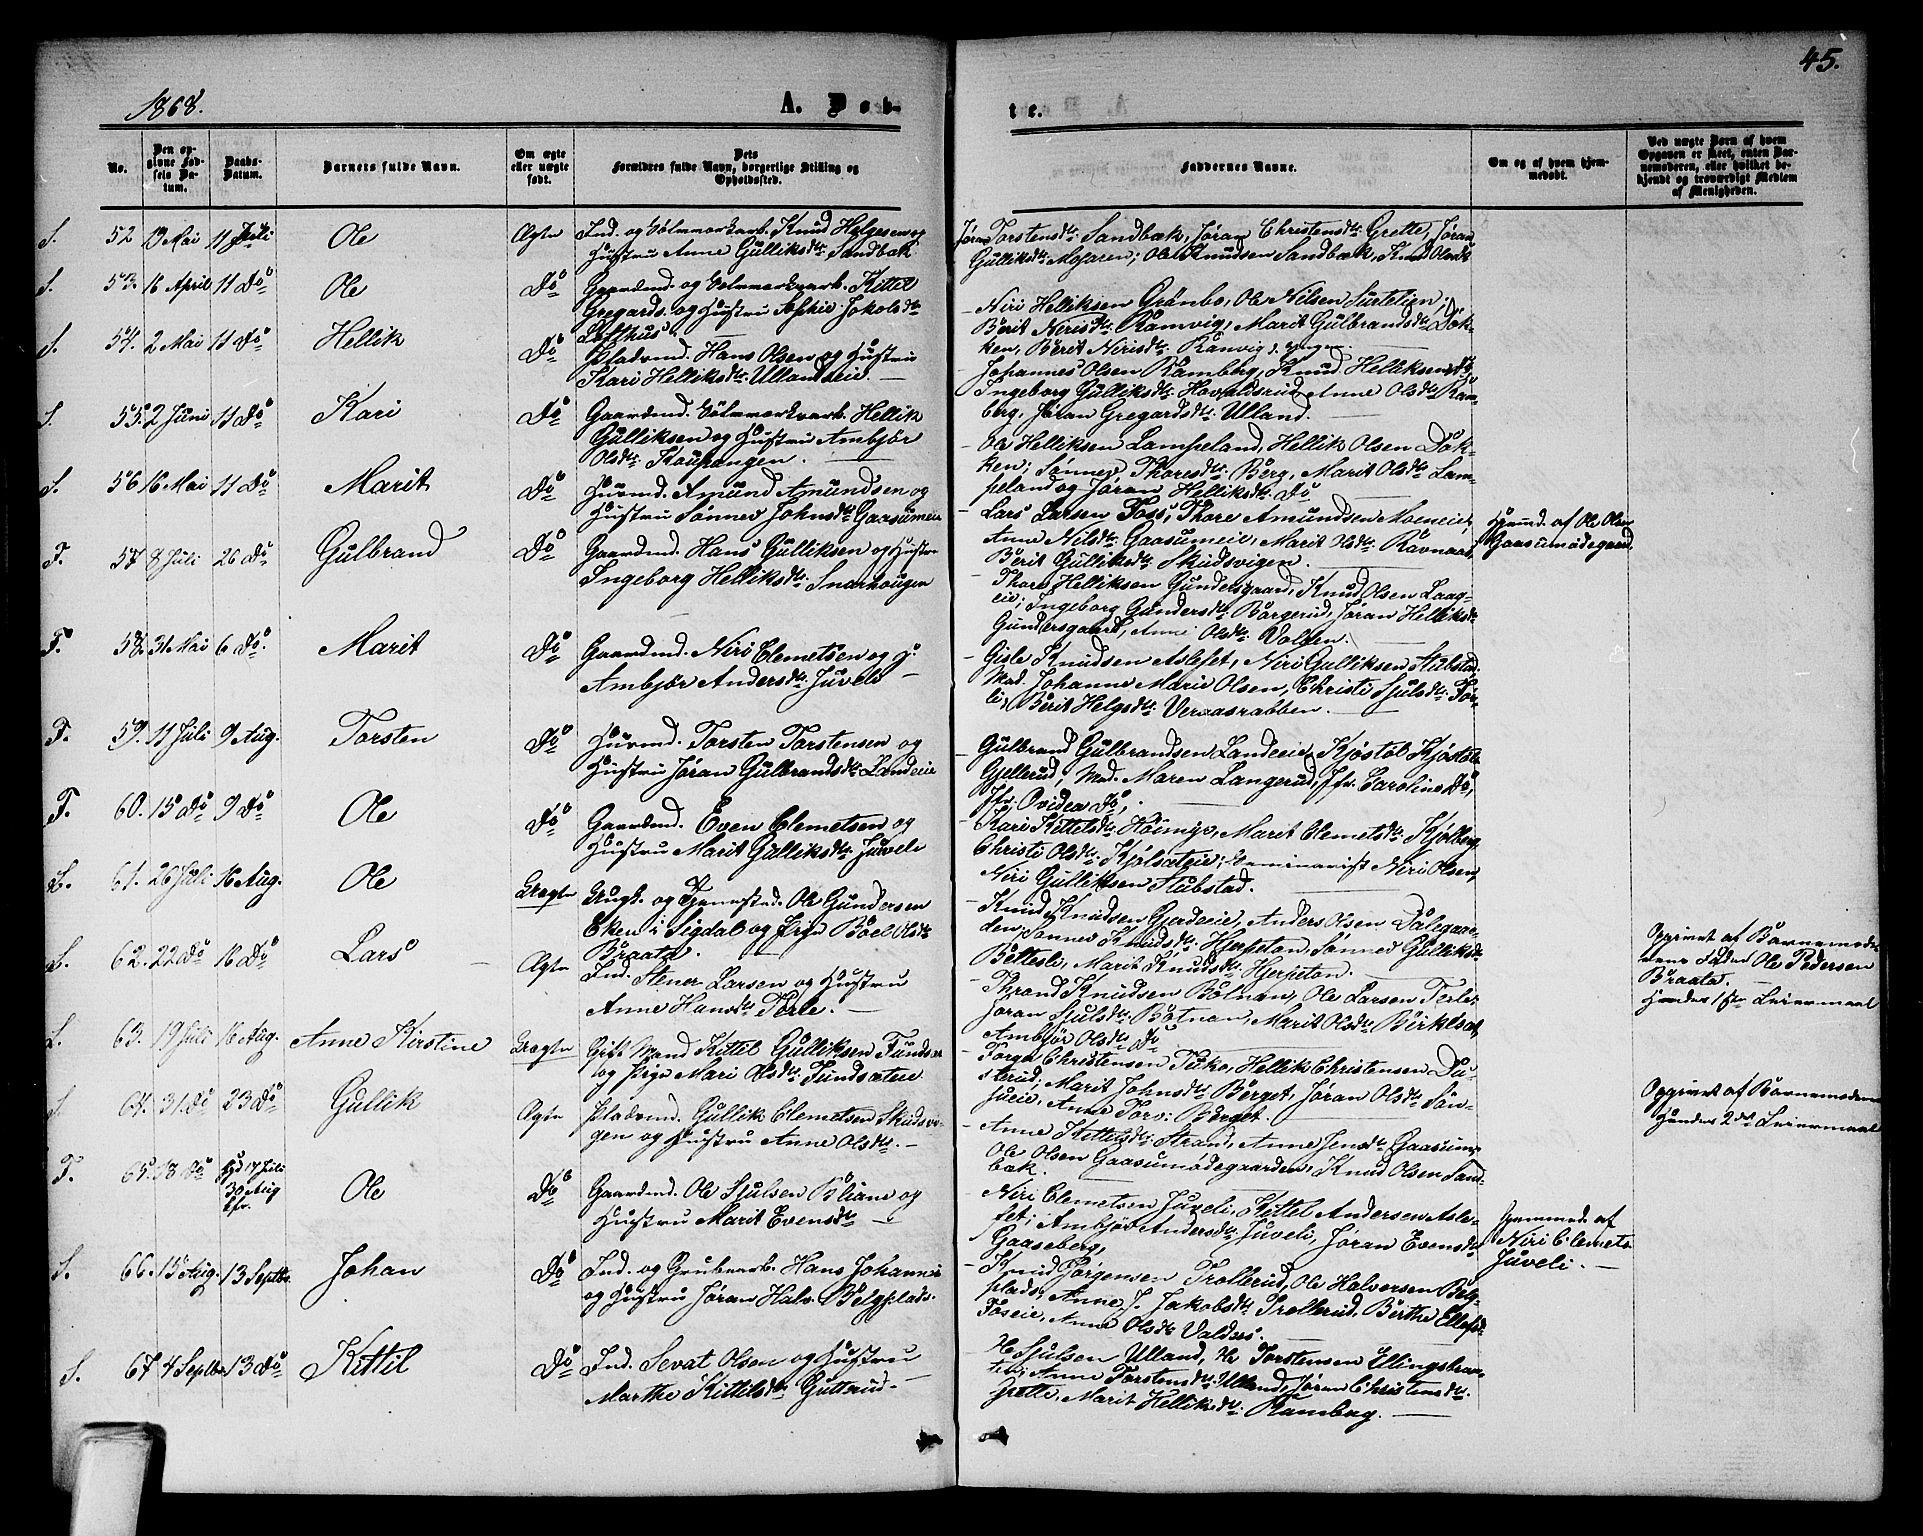 1868.
A. Døb-
te.
45.
No.
Den op-
givne Fød-
sels Da-
tum.
Daabs-
Datum.
Barnets fulde Navn.
Om ægte
eller uægte
født.
Dets
Forældres fulde Navn, borgerlige Stilling og
Opholdssted.
Faddernes Navne.
Om og af hvem hjem-
medøbt.
Ved uægte Børn af hvem
Opgaven er skeet, enten Bar-
nemoderen, eller hvilket be-
kjendt og troværdigt Medlem
af Menigheden.
S. 52 Mai 11 Juli Ole Ægte Ind. og Sølvverksarb. Knud Helgesen og
Hustru Anne Gulliksdtr. Sandbæk
Jøran Torstensdtr. Sandbæk, Jøran Christensdtr. Grette, Jøran
Gulliksdtr. Mogaren, Ole Knudsen Sandbæk, Knud Olsen Do
S. 53. 16 April 11 Do Ole Do Gaardmd. og Sølvverksarb. Kittel
Gregards. og Hustru Sophie Jakobsdtr
Lofthus
Niri Helliksen Grønbo, Ole Nilsen Surtelien,
Berit Nirisdtr. Ramvig, Marit Gulbrandsdtr. Døk-
ken, Berit Nirisdtr. Ranvig d. yngre.
S. 54. 2 Mai 11 Do Hellik Do Pladsmd. Hans Olsen og Hustru
Kari Helliksdtr. Ullandseie.
Johannes Olsen Ramberg, Knud Helleksen Do,
Ingeborg Gulliksdtr. Havaldsrud, Anne Olsdtr. Ram-
berg, Jøran Gregardsdtr. Ulland.
S. 55. 2 Juni 11 Do Kari Do Gaardmd. Sølvverksarb. Hellik
Gulliksen og Hustru Ambjør
Olsdtr. Koupangen.
Ole Helliksen Lampeland, Hellik Olsen Døk-
ken, Sønnev Thoresdtr. Berg, Marit Olsdtr. Lam-
peland og Jøran Helliksdtr. Do
S. 56 16 Mai 11 Do Marit Do Husmd. Amund Amundsen og
Hustru Sønnev Johnsdtr. Gaasumeie
Lars Larsen Foss, Thore Amundsen Moeneie,
Anne Nilsdtr. Gaasumeie, Marit Olsdtr. Ravnaas,
Berit Gulliksdtr. Skudsvigen.
Hjemd. af Ole Olsen
Gaasumødegaard.
F. 57 8 Juli 26 Do Gulbrand Do Gaardmd. Hans Gulliksen og Hustru
Ingeborg Helliksdtr. Snarhougen
Thore Helliksen Gundersgaard, Knud Olsen Laag-
eie, Ingeborg Gundersdtr. Borgerud, Jøran Helliksdtr.
Gundersgaard, Anne Olsdtr. Volden.
F. 58. 31 Mai 6 Do. Marit Do Gaardmd. Niri Clemetsen og H.
Ambjør Andersdtr. Juveli
Gisle Knudsen Aslefet, Niri Gulliksen Stubstad,
Mad. Johanne Marie Olsen, Christi Sjulsdtr. Jør-
li, Berit Helgesdtr. Veraasrabben.
F. 59. 11 Juli 9 Aug. Torsten Do Husmd. Torsten Torstensen og
Hustru Jøran Gulbrandsdtr. Landeeie
Gulbrand Gulbrandsen Landeeie, Kjøstol Kjøstols.
Gjellerud, Mad. Maren Langerud, Jfr. Caroline Do,
Jfr. Ovidea Do,
F. 60. 15 Do 9 Do Ole Do Gaardmd. Even Clemetsen og
Hustru Marit Gulliksdtr. Juveli
Kari Kittelsdtr. Høimyr, Marit Clemetsdtr. Kjølberg,
Christi Olsdtr. Kjølseteie, Seminarist Niri Olsen,
Niri Gulliksen Stubstad.
S. 61. 26 Juli 16 Aug. Ole Uægte Ungk. og Tjenested. Ole Gundersen
Eken i Sigdal og Pige Boel Olsdtr.
Braata.
Knud Knudsen Gjerdeeie, Anders Olsen Dalegaar-
den, Sønnev Knudsdtr. Hjerpeton, Sønnev Gulliksdtr
Bettesli, Marit Knudsdtr. Hjerpeton.
Opgivet af Barnemode-
rens Fader Ole Pedersen
Braata.
Hendes 1ste Leiermaal
S. 62. 22 Do 16 Do Lars Ægte Ind. Stener Larsen og Hustru
Anne Hansdtr. Torle.
Thrond Knudsen Bølnan, Ole Larsen Terle,
Jøran Sjulsdtr. Botnan, Marit Olsdtr. Birkeset,
Ambjør Olsdtr. Do
S. 63. 19 Juli 16 Aug. Anne Kirstine Uægte Gift Mand Kittel Gulliksen Fundset
og Pige Mari Olsdtr. Fundsæteie
Christensen Tuko, Hellik Christensen Du-
sterud, Marit Johnsdtr. Børget, Jøran Olsdtr. Søn-
jueie, Anne Tors. Børget.
Opgivet af Barnemoderen
Hendes 2det Leiermaal
S. 64. 31. Do 23 Do Gullik Ægte Pladsmd. Gullik Clemetsen Skudsvi-
gen og Hustru Anne Olsdtr.
Anne Kittelsdtr. Strand, Anne Jensdtr. Gaasum,
Ole Olsen Gaasumødegaarden, Knud Olsen Sand-
bæk.
F. 65. 18 Do Hjd 17 Juli
30 Aug
Kfr. Ole Do Gaardmd. Ole Sjulsen Bliane og
Hustru Marit Evensdtr
Niri Clemetsen Juveli, Kittel Andersen Asle-
fet, Ambjør Andersdtr. Juveli, Jøran Evensdtr
Gaaseberg,
Hjemmed. af
Niri Clemets.
Juveli.
S. 66. 15 Aug. 13 Septbr. Johan Do Ind. og Grubearb. Hans Johannes.
og Hustru Jøran Halv. Belgplads.
Knud Jørgensen Trollerud, Ole Halversen Belg-
plads, Anne J. Jakobsdtr. Trollerud, Birthe Ellefsdtr
Foseie, Anne Olsdtr Valdres.
S. 67 4 Septbr 13 Do Kittil Do Ind. Sevat Olsen og Hustru
Marthe Kittilsdtr. Gutterud.
H. Sjulsen Ulland, He Torstensen Ellingsbraa-
ten, Anne Torstensdtr. Ulland, Jøran Christensdtr.
Grette, Marit Helliksdtr. Ramberg.